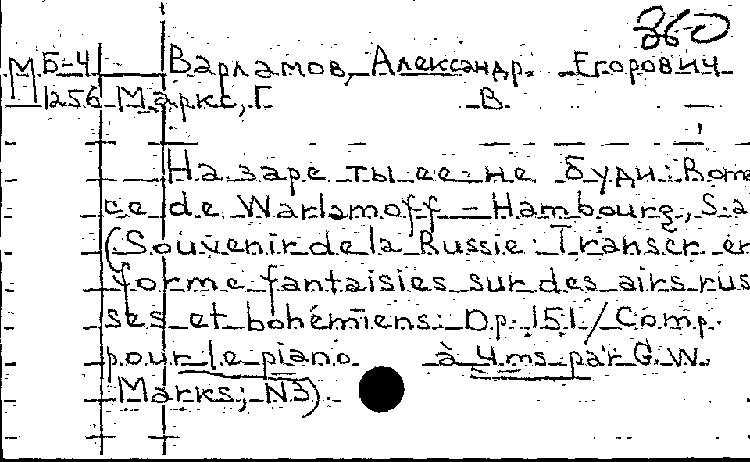 860
М Б-4 Варламов, Александр Егорович
1256 Маркс, Г. В.
На заре ты ее не буди: Roman
ce de Warlamoff - Hambourg, S.a
(Souvenir de la Russie: Transcr en
forme fantaisies sur des airs rus
ses et bohémiens: Op. 151/ Comp.
pour le piano à 4 ms par G.W.
Marks; N3).